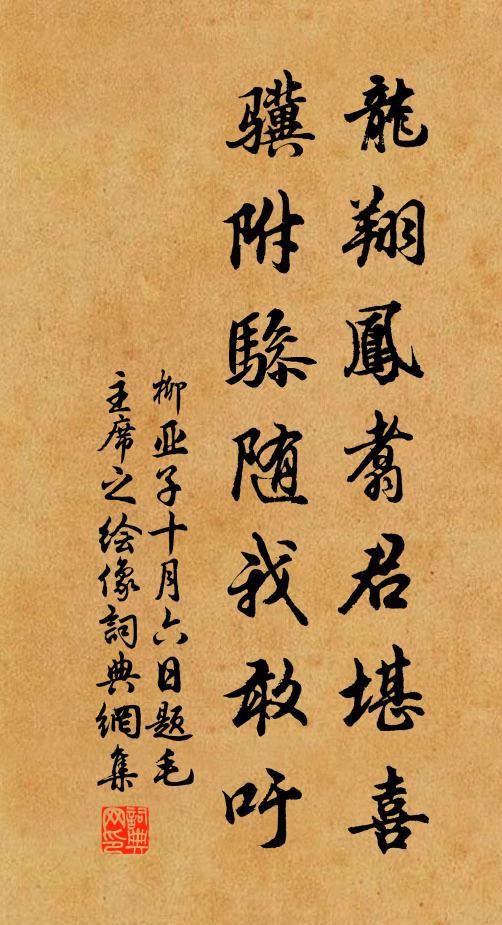 龍翔鳳翥君堪喜
驥附驂随我敢吁
柳亚子十月六日题毛
主席之绘像詞典網集
詞典网印